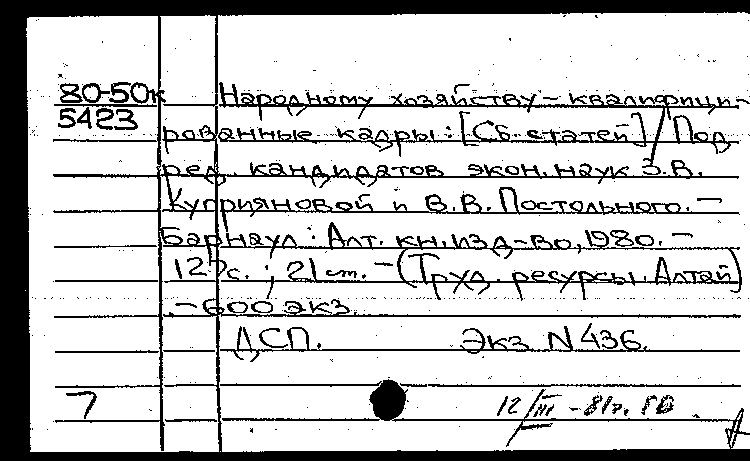 80-50к Народному хозяйству – квалифици-
5423 рованные кадры: [Сб. статей] / Под
ред. кандидатов экон. наук З.В.
Куприяновой и В.В. Постольного. –
Барнаул: Алт. кн. изд-во, 1980. –
127с.; 21 см. – (Труд. ресурсы Алтай)
. – 600 экз.
ДСП. Экз N 436.
7 12/III – 81г.